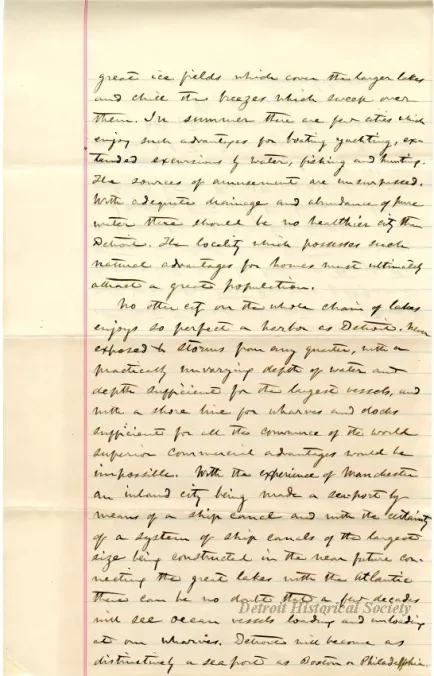 great ice fields which cover the larger lakes
and chill the breezes which sweep over
them. In summer there are few cities which
enjoy such advantages for boating yachting, ex-
tended excursions by water, fishing and hunting.
The sources of amusement are unsurpassed.
With adequate drainage and abundance of pure
water there should be no healthier city than
Detroit. The locality which possesses such
natural advantages for homes must ultimately
attract a great population.
No other city on the whole chain of lakes
enjoys so perfect a harbor as Detroit. Never
exposed to storms from any quarter, with a
practically unvarying depth of water and
depth sufficient for the largest vessels, and
with a shore line for wharves and docks
sufficient for all the commerce of the world
superior commercial advantages would be
impossible. With the experience of Manchester
an inland city being made a seaport by
means of a ship canal and with the certainty
of a system of ship canals of the largest
size being constructed in the near future con-
necting the great lakes with the Atlantic
there can be no doubt that a few decades
will see ocean vessels loading and unloading
at our wharves. Detroit will become as
distinctively a seaport as Boston or Philadelphia.
Detroit Historical Society